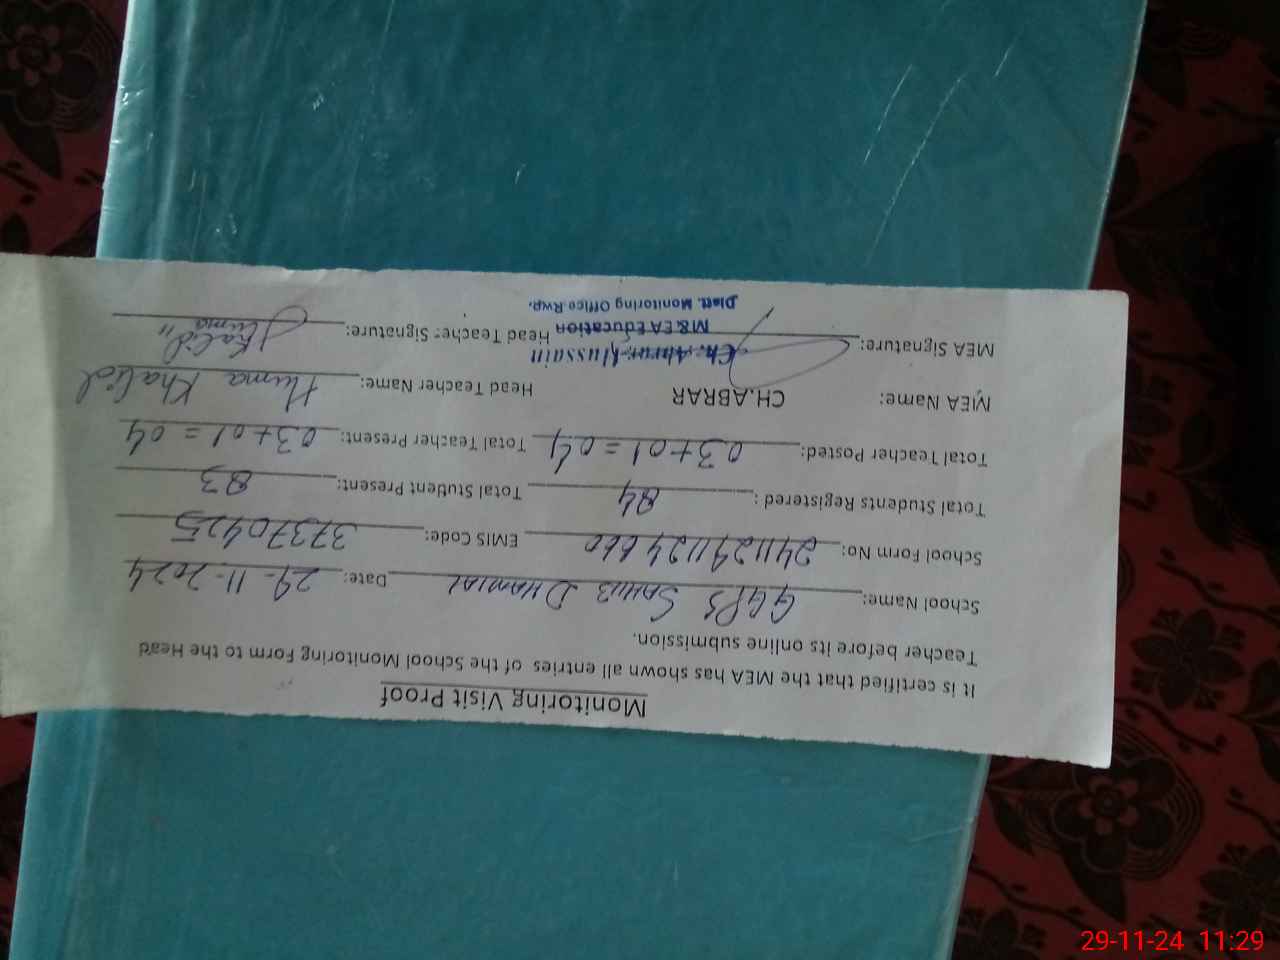 Monitoring Visit Proof
It is certified that the MEA has shown all entries of the School Monitoring Form to the Head
Teacher before its online submission.
School Name: GGPS SAHIB DHAMIAL Date: 29-11-2024
School Form No: EMIS Code: 37370425
Total Students Registered: 84 Total Student Present: 83
Total Teacher Posted: 03+01=04 Total Teacher Present: 03+01=04
MEA Name: CH.ABRAR Head Teacher Name: Huma Khalid
Ch. Abrar Hussain
MEA Signature: Head Teacher Signature: Huma Khalid
M&EA Education
Distt. Monitoring Office Rwp.
29-11-24 11:29